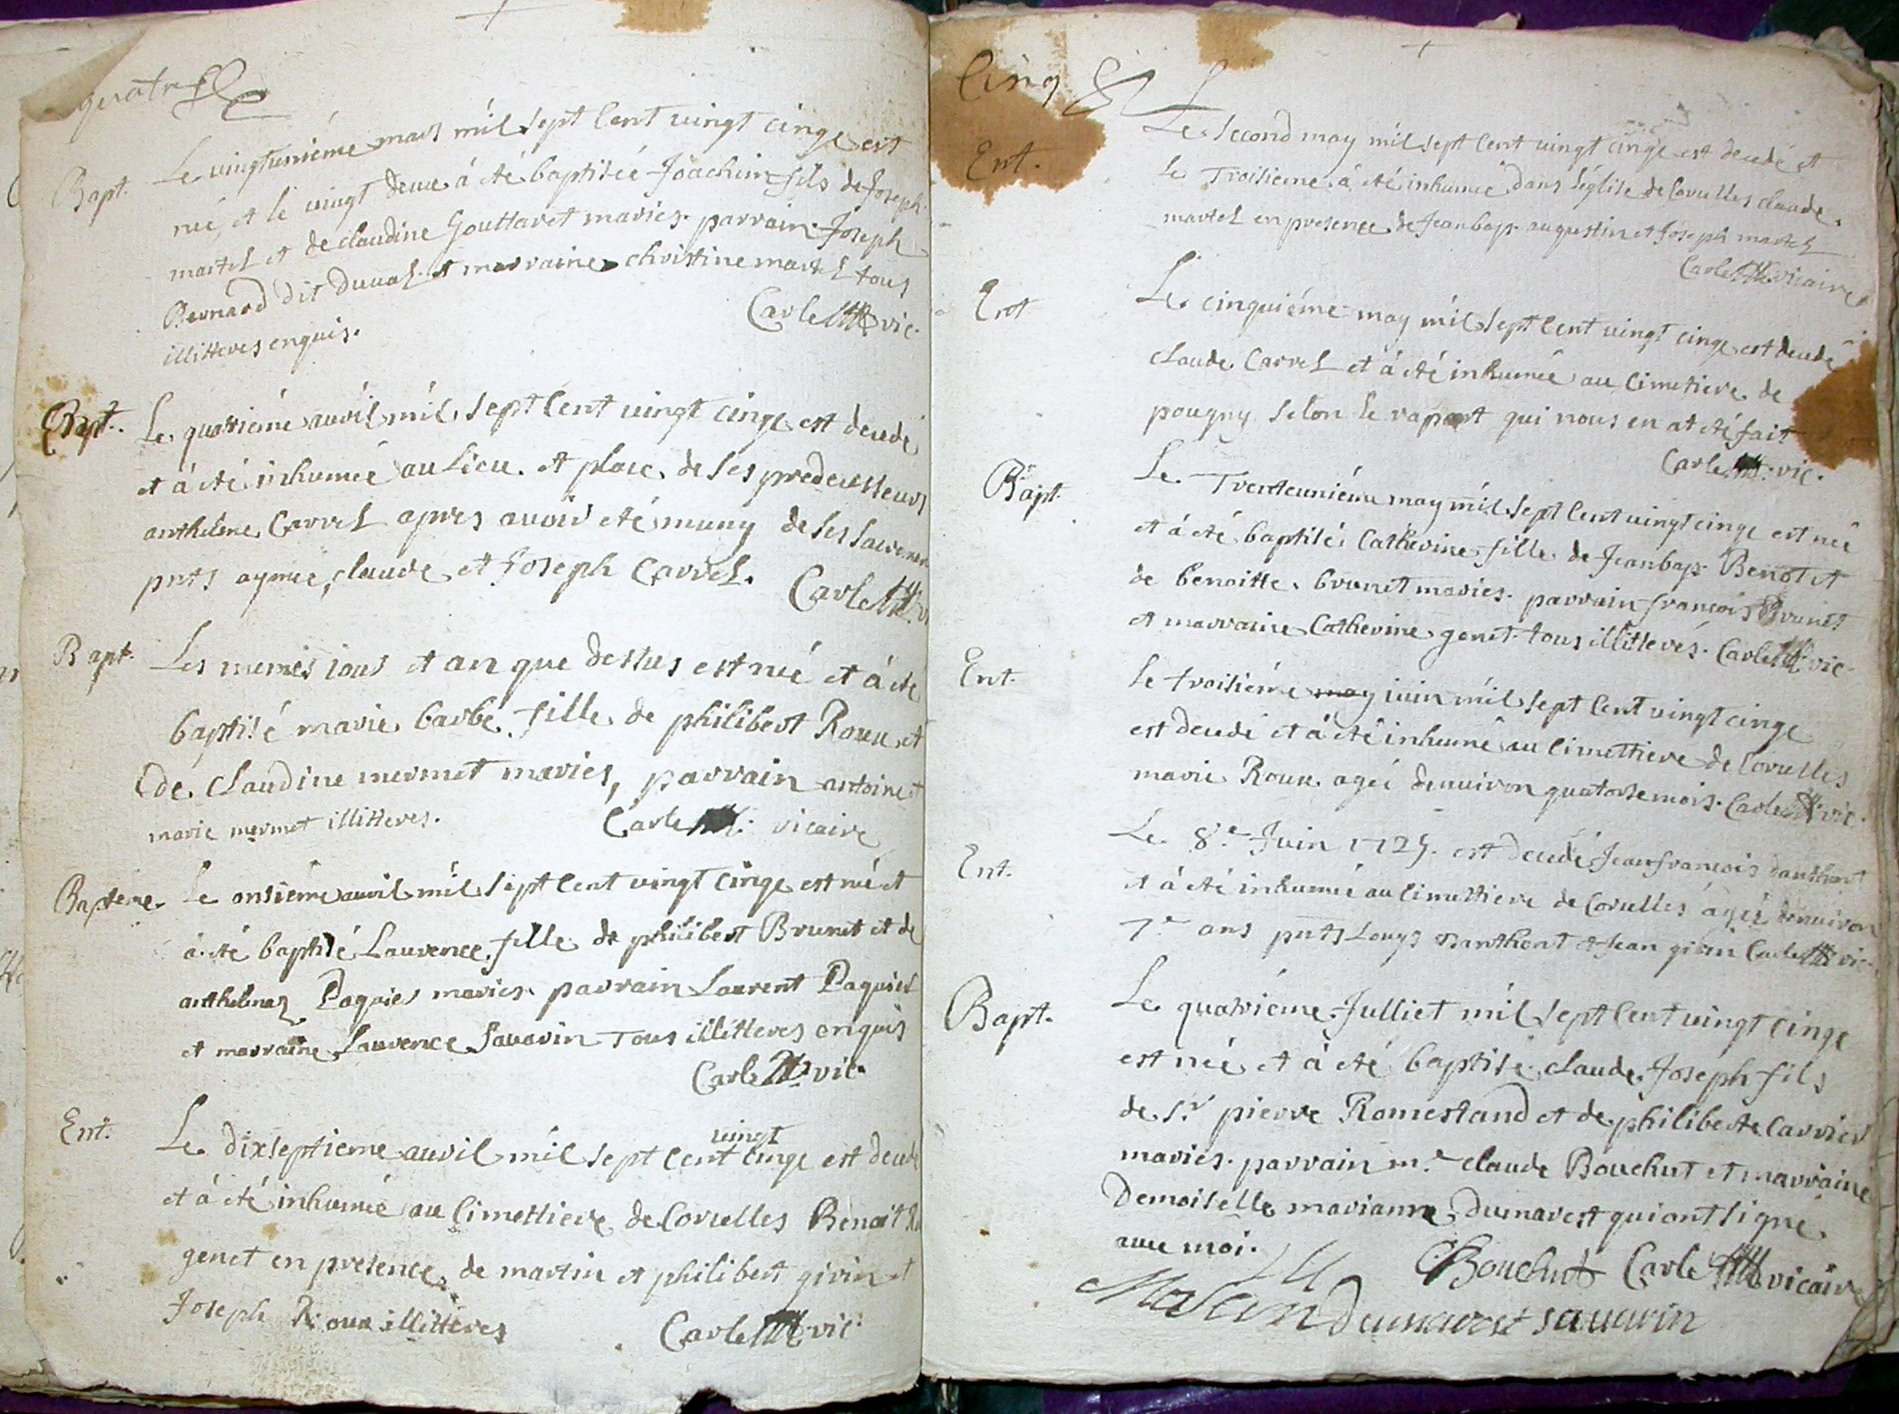 quatre
Bapt. Le vingtuniéme mars mil sept Cent vingt cinqe est
né, et le vingt deux á été baptiséé Joachim fils de Joseph
martel et de claudine Gouttaret mariés. parrain Joseph
Bernard dit Duual et marraine christine martel tous
illitteres enquis. Carle vic.
Bapt. Le quatriémé auril mil sept Cent vingt cinqe est decedé
et á été inhumeé au Lieu et place de ses predecesseurs
anthelme Carrel apres auoir été muny de ses sacremen
pnts aymé, claude et Joseph Carrel. Carle
Bapt. Les memes iour et an que dessus est néé et á été
baptisé marie barbe fille de philibert Roux et
de claudine mermet mariés, parrain antoine et
marie mermet illitteres. Carle vicaire
Bapteme. Le onsiéme auril mil sept Cent vingt cinqe est né et
á été baptisé Laurence fille de philibert Brunet et de
anthelmaz Paquier mariés parrain Laurent Paquier
et marraine Laurence Sauarin Tous illitteres enquis
Carle vic.
Ent. Le dixseptieme auril mil sept Cent vingt cinqe est decedé
et á été inhumé au Cimettiere de Coruelles Benoit
genet en presence de martin et philibert girin et
Joseph Roux illitteres Carle vic.
Cinq
Ent. Le second may mil sept Cent vingt cinqe est decedé et
le Troisieme á été inhumeé dans l'église de Coruelles claude
martel en presence de Jeanbap. augustin et Joseph martel
Carle vicaire
Ent Le cinquiéme may mil sept Cent vingt cinqe est decedé
claude Carrel et á été inhumeé au Cimetiere de
pougny selon le raport qui nous en at été fait
Carle vic.
Bapt. Le Trenteuniéme may mil sept Cent vingt cinqe est néé
et á été baptiséé Catherine fille de Jeanbap. Benot et
de benoitte brunet mariés. parrain françois Brunet
et marraine Catherine genet tous illitterés. Carle vic.
Ent. Le troisiéme may iuin mil sept Cent vingt cinqe
est decedé et á été inhumé au Cimettiere de Coruelles
marie Roux ageé denuiron quatorse mois. Carle vic.
Ent. Le 8.e Juin 1725. est decedé Jeanfrancois danthont
et á été inhumé au Cimettiere de Coruelles ageé denuiron
7. ans pnts Louys danthont et Jean girin Carle vic.
Bapt. Le quatriéme Julliet mil sept Cent vingt cinqe
est néé et á été baptisé claude Joseph fils
de S.r pierre Romestand et de philiberte Carrier
mariés. parrain m.e claude Bouchut et marraine
Demoiselle marianne Dumarest qui ont signé
auec moi. CBouchut Carle vicaire
Dumarest sauarin